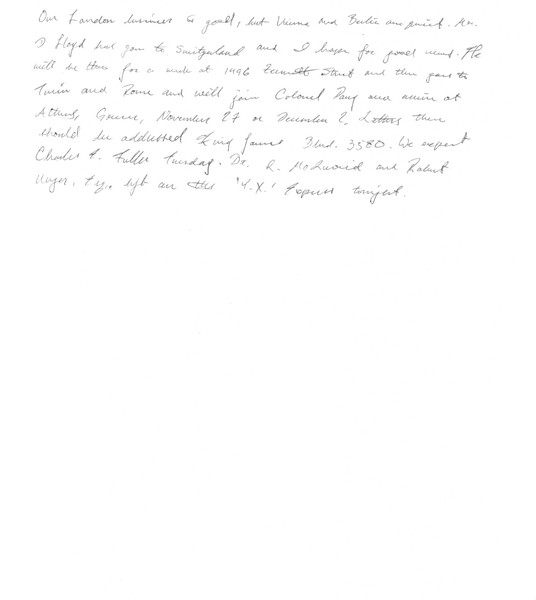 Our London business is good, but Vienna and Berlin are quiet. Mr.
D Lloyd has gone to Switzerland and I hope for good news. He
will be there for a week at 1496 Zermott Street and then goes to
Turin and Rome and will join Colonel Parry and arrive at
Athens, Greece, November 27 or December 2. Letters there
should be addressed King James Blvd. 3580. We expect
Charles E. Fuller Tuesday. Dr. L. McQuaid and Robert
Unger, Esq., left on the 'Y.X.' Express tonight.